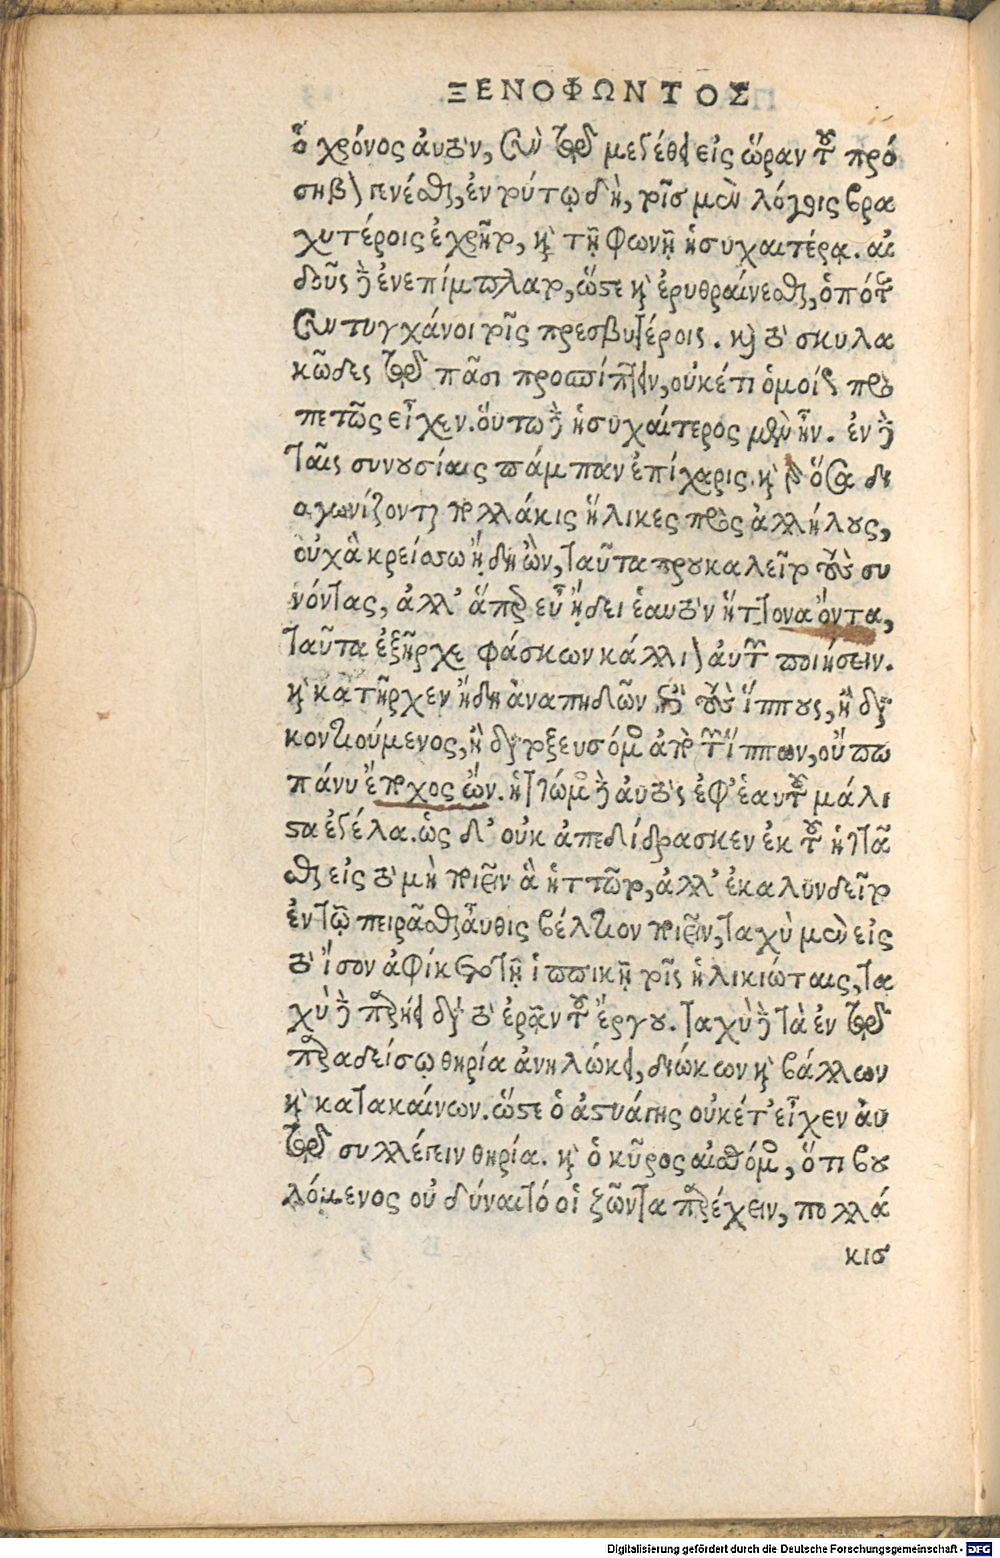 ΞΕΝΟΦΩΝΤΟΣ
ὁ χρόνος ἀυτὸν, σὺν τῷ μεγέθει εἰς ὥραν τοῦ πρό
σηβον γενέσθαι, ἐν τούτῳ δὴ, τοῖς μὲν λόγοις βρα
χυτέροις ἐχρῆτο, καὶ τῇ φωνῇ ἡσυχαιτέρᾳ. αἰ
δοῦς δὲ ἐνεπίμπλατο, ὥστε καὶ ἐρυθραίνεσθαι, ὁπότε
συντυγχάνοι τοῖς πρεσβυτέροις. καὶ τὸ σκυλα
κῶδες τῷ πᾶσι προσπίπτειν, οὐκέτι ὁμοίως προ
πετῶς εἶχεν. οὕτω δὲ ἡσυχαίτερος μὲν ἦν. ἐν δὲ
ταῖς συνουσίαις πάμπαν ἐπίχαρις. καὶ γὰρ ὅσα δι
αγωνίζονται πολλάκις ἥλικες πρὸς ἀλλήλους,
οὐχ ἃ κρείσσω ᾔδη ὢν, ταῦτα προυκαλεῖτο τοὺς συ
νόντας, ἀλλ' ἅπερ εὖ ᾔδει ἑαυτὸν ἥττονα ὄντα,
ταῦτα ἐξῆρχε φάσκων κάλλιον ἀυτῶν ποιήσειν.
καὶ κατῆρχεν ἤδη ἀναπηδῶν ἐπὶ τοὺς ἵππους, ἢ δια
κοντιούμενος, ἢ διατοξευσόμενος ἀπὸ τῶν ἵππων, οὔπω
πάνυ ἔποχος ὤν. ἡττώμενος δὲ ἀυτὸς ἐφ' ἑαυτοῦ μάλι
στα ἐγέλα. ὡς δ' οὐκ ἀπεδίδρασκεν ἐκ τοῦ ἡττᾶ
σθαι εἰς τὸ μὴ ποιεῖν ἃ ἡττῶτο, ἀλλ' ἐκαλυνδεῖτο
ἐν τῷ πειρᾶσθαι αὖθις βέλτιον ποιεῖν, ταχὺ μὲν εἰς
τὸ ἴσον ἀφίκετο τῇ ἱππικῇ τοῖς ἡλικιώταις, τα
χὺ δὲ παρῄει διὰ τὸ ἐρᾷν τοῦ ἔργου. ταχὺ δὲ τὰ ἐν τῷ
παραδείσῳ θηρία ἀνηλώκει, διώκων καὶ βάλλων
καὶ κατακαίνων. ὥστε ὁ ἀστυάγης οὐκέτ' εἶχεν ἀυ
τῷ συλλέγειν θηρία. καὶ ὁ κῦρος αἰσθόμενος, ὅτι βου
λόμενος οὐ δύναιτό οἱ ζῶντα παρέχειν, πολλά
κισ
Digitalisierung gefördert durch die Deutsche Forschungsgemeinschaft - DFG